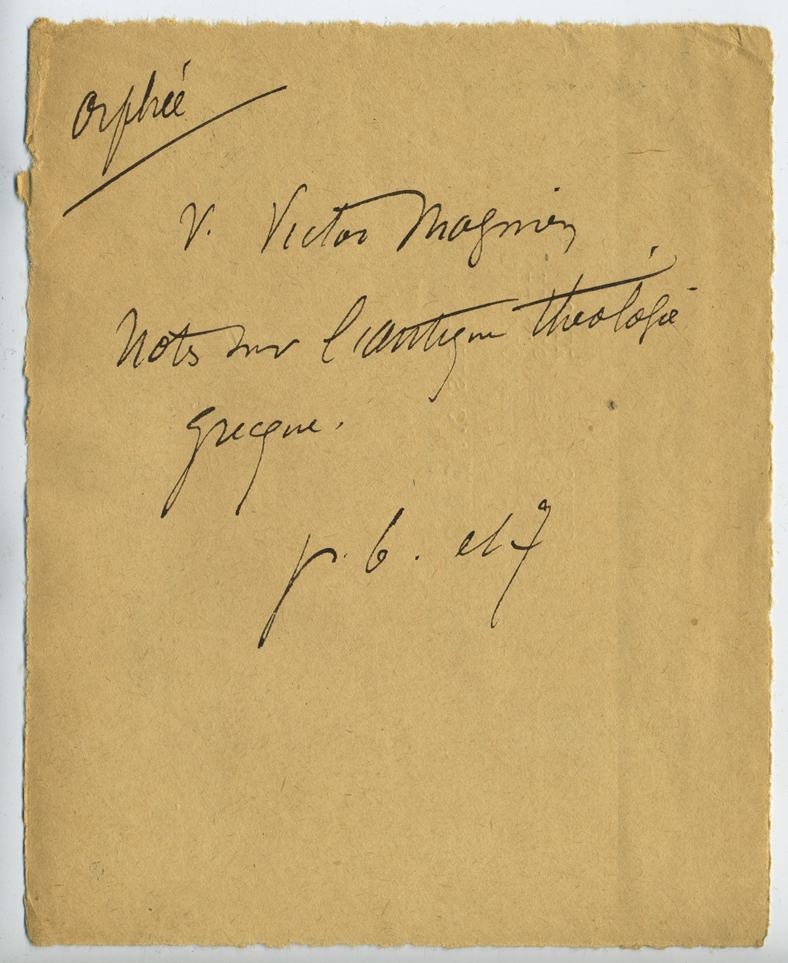 Orphée
V. Victor Magnien
Notes sur l'antique théologie
grecque.
p. 6. et 7